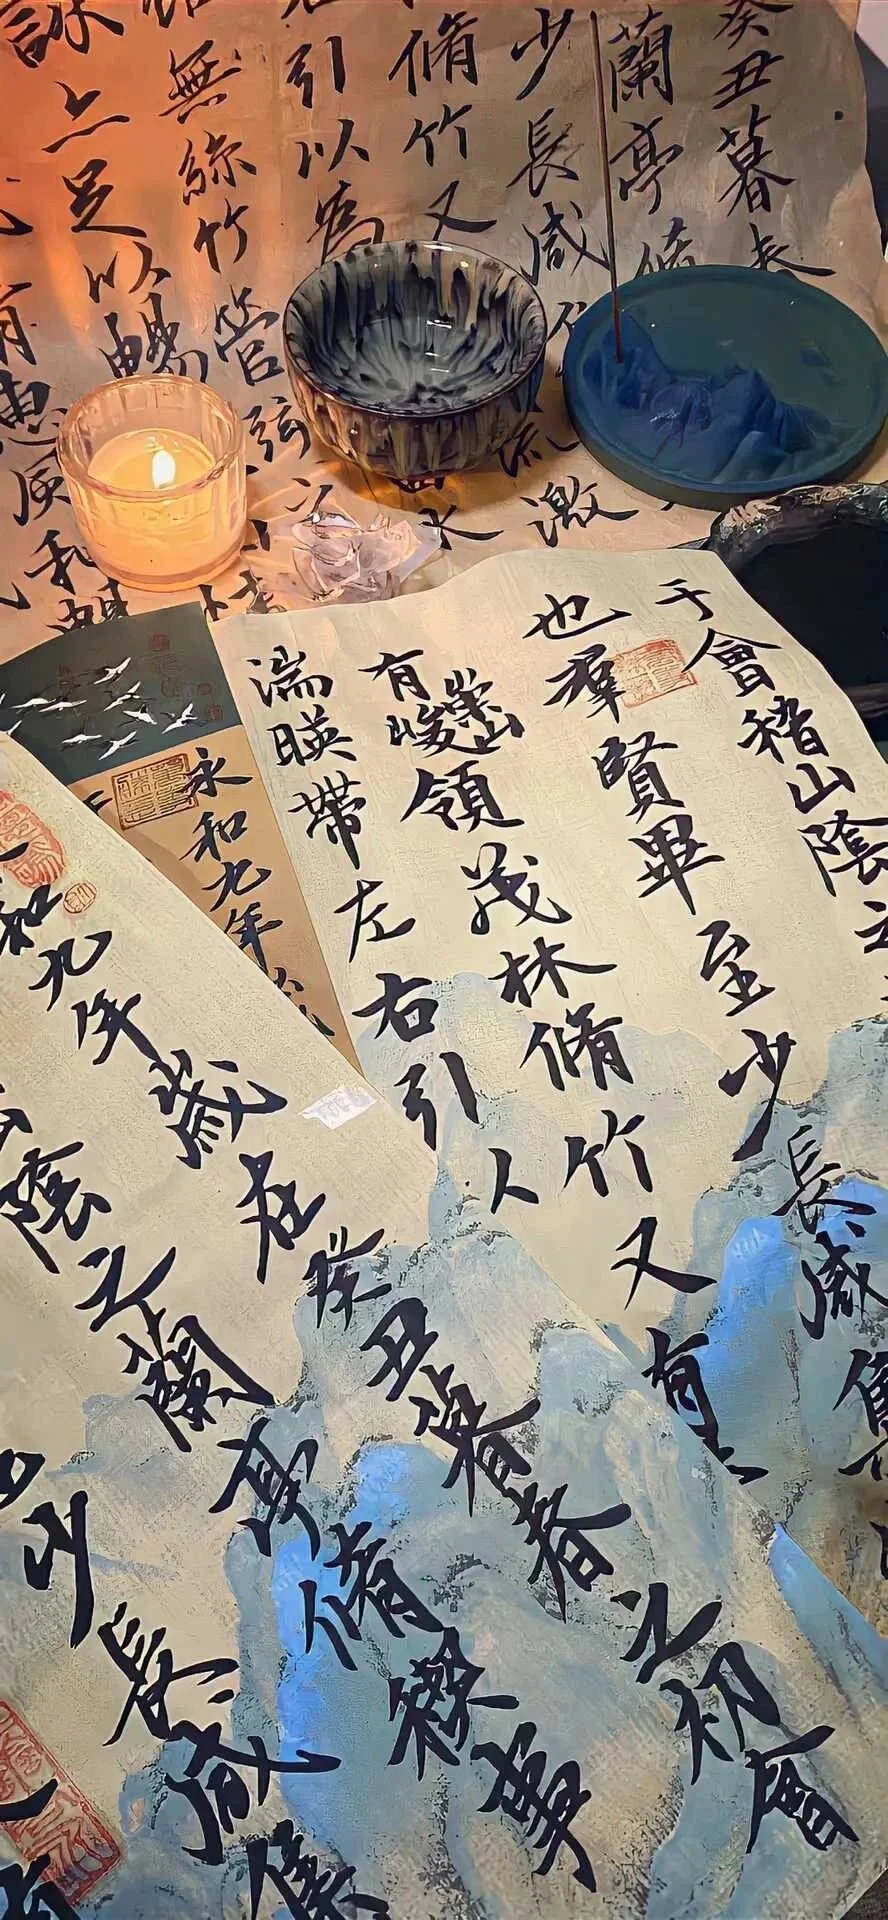 癸丑暮春
蘭亭脩
少長咸
脩竹又流激
引以為水
無絲竹管弦之
詠亦足以暢情
有惠風和暢
于會稽山陰之
也羣賢畢至少長咸集
有崇山峻領茂林脩竹又有
湍暎帶左右引
永和九年歲
和九年歲在癸丑暮春之初會
陰之蘭亭脩禊事
少長咸集